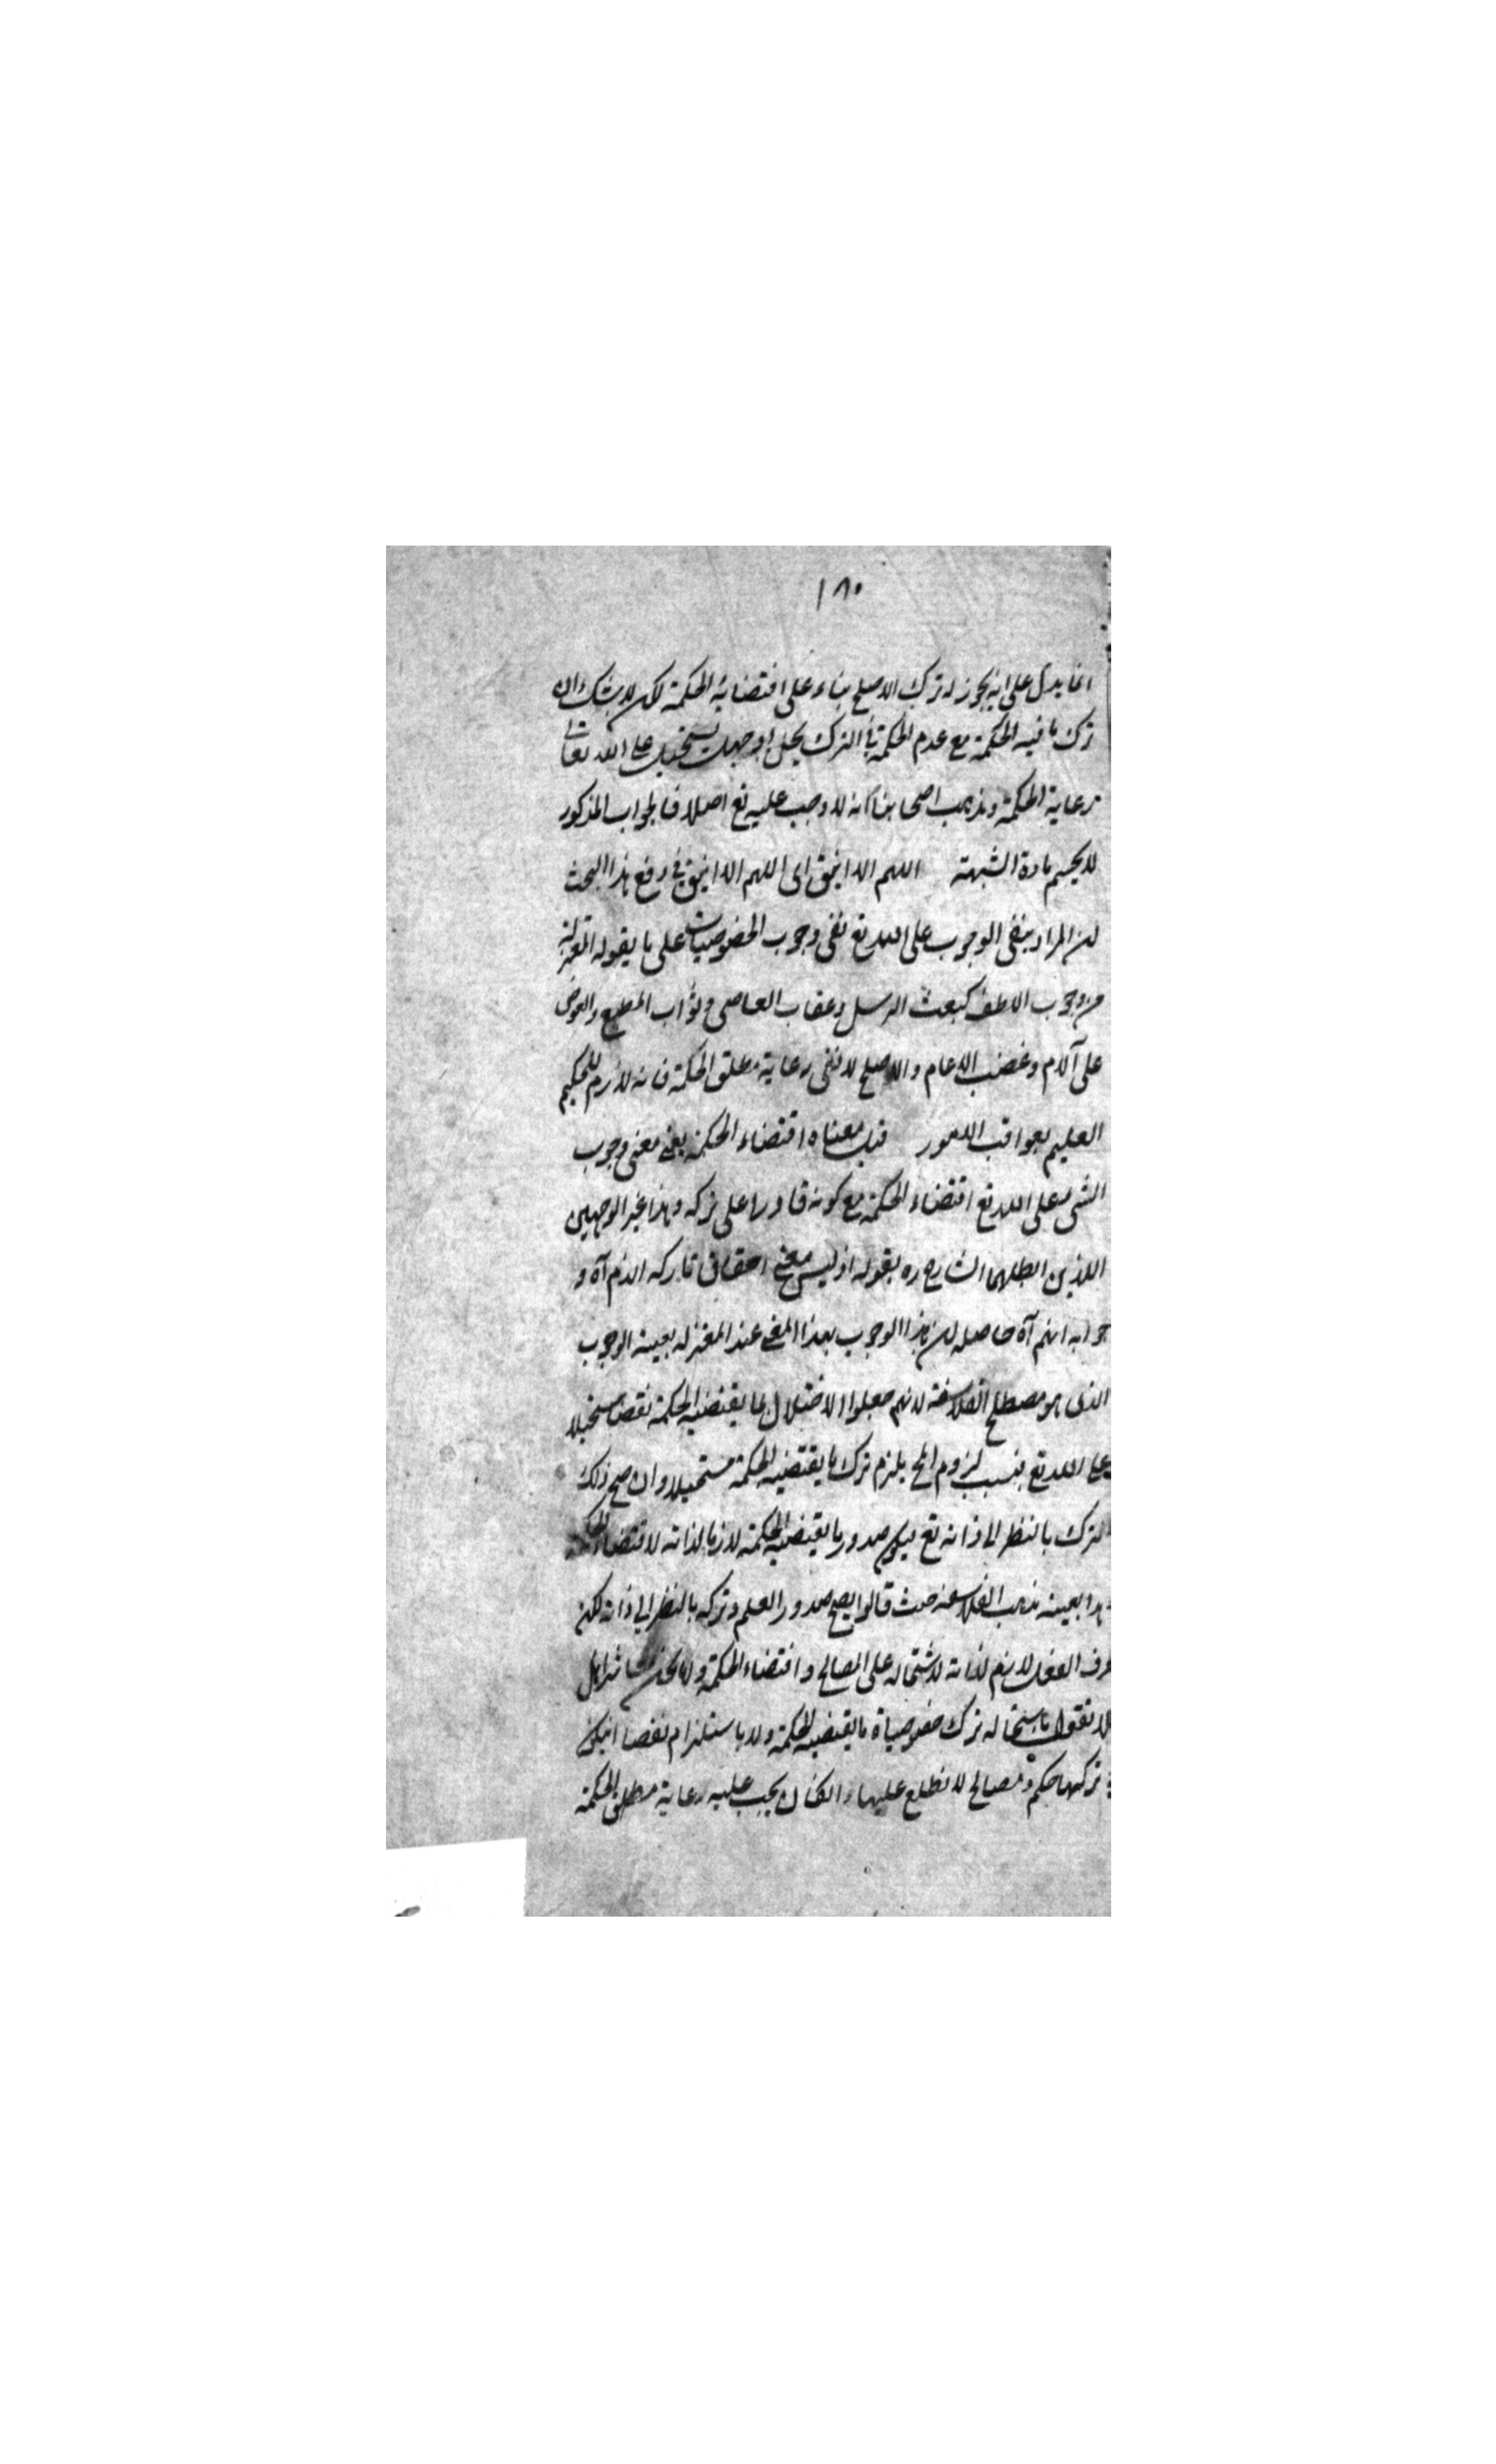 ١٨٠
انما يدل على انه يجوز له ترك الاصلح بناء على اقتضائه الحكمة لكن لا شك ان
ترك ما فيه الحكمة مع عدم الحكمة في الترك بخل او جهل يستحيل على الله تعالى
رعاية الحكمة ومذهب اصحابنا انه لا وجب عليه تع اصلا فالجواب المذكور
لا يحسم مادة الشبهة اللهم الا ان يق اى اللهم الا ان يق في دفع هذا البحث
لان المراد بنفى الوجوب على الله تع نفى وجوب الخصوصيات على ما يقوله المعتزلة
من وجوب اللطف كبعث الرسل وعقاب العاصى وثواب المطيع والعوض
على آلام وغضب الانعام والاصلح لا نفى رعاية مطلق الحكمة فانه لازم للحكيم
العليم بعواقب الامور قيل معناه اقتضاء الحكمة يعنى معنى وجوب
الشىء على الله تع اقتضاء الحكمة مع كونه قادرا على تركه وهذا غير الوجهين
اللذين ابطلهما الشارح ره بقوله اذ ليس معنى استحقاق تاركه الذم آه و
جوابه انهم آه حاصله لان هذا الوجوب بهذا المعنى عند المعتزله بعينه الوجوب
الذى هو مصطلح الفلاسفة لانهم جعلوا الاختلال بما يقتضيه الحكمة نقصا مستحيلا
على الله تع فبسبب لزوم المح يلزم ترك ما يقتضيه الحكمة مستحيلا وان صح ذلك
الترك بالنظر الى ذاته تع فيكون صدور ما يقتضيه الحكمة لازما لذاته لاقتضاء
هذا بعينه مذهب الفلاسفه حيث قالوا يصح صدور العلم وتركه بالنظر الى ذاته لكن
طرف الفعل لازم لذاته لاشتماله على المصالح واقتضاء الحكمة واما نحن معاشر اهل
فلا نقول باستحاله ترك خصوصياة ما يقتضيه الحكمة ولا باستلزام نقصا اذ يكون
في تركها حكم ومصالح لا نطلع عليها وان كان يجب عليه رعاية مطلق الحكمة